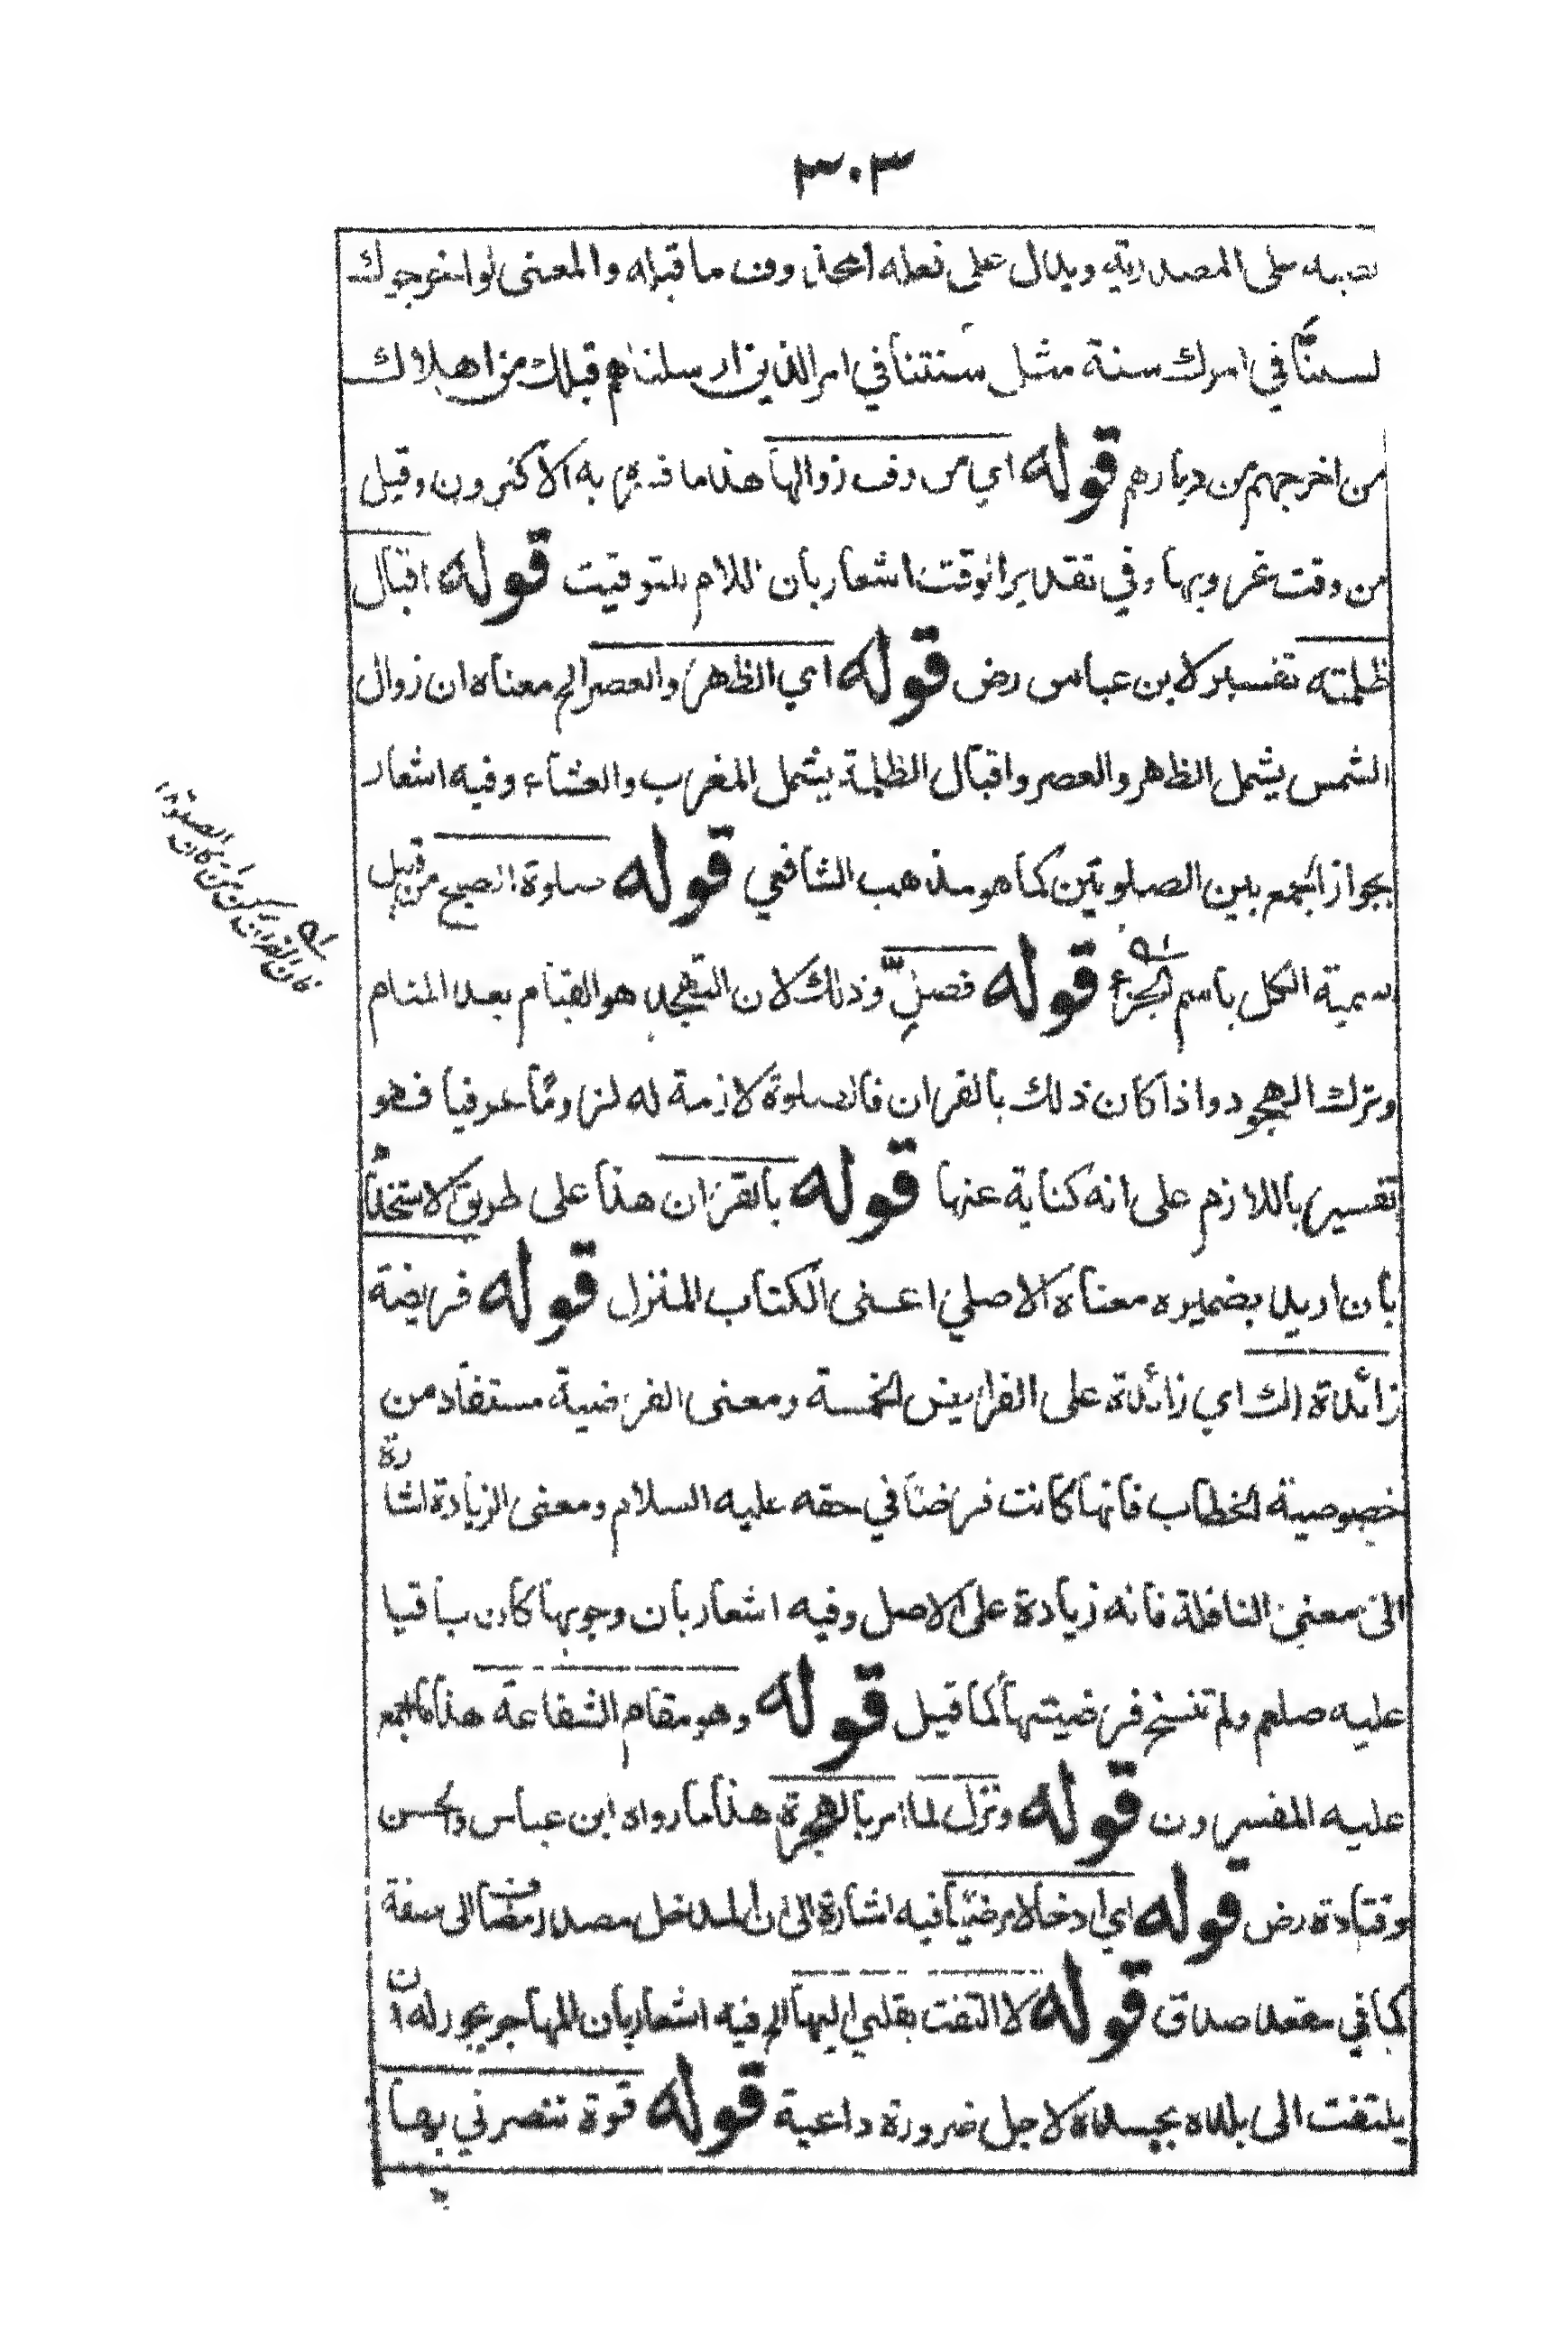 ٣٠٣
نصبه على المصدرية ويدل على فعله المحذوف ما قبله والمعنى لو اخرجوك
لسننّا في امرك سنة مثل سنتنا في امر الذين ارسلناهم قبلك من اهلاك
من اخرجهم من ديارهم قوله اي من وقت زوالها هذا ما فسره به الاكثرون وقيل
من وقت غروبها وفي تقدير الوقت اشعار بان اللام للتوقيت قوله اقبال
ظلمته تفسير لابن عباس رض قوله اي الظهر والعصر الخ معناه ان زوال
الشمس يشمل الظهر والعصر واقبال الظلمة يشمل المغرب والعشاء وفيه اشعار
بجواز الجمع بين الصلوتين كما هو مذهب الشافعي قوله صلوة الصبح من قبيل
تسمية الكل باسم الجزء قوله فصلِّ وذلك لان التهجد هو القيام بعد المنام
وترك الهجود واذا كان ذلك بالقران فالصلوة لازمة له لزوما عرفيا فهو
تفسير باللازم على انه كناية عنها قوله بالقران هذا على طريق الاستخدا
بان اريد بضميره معناه الاصلي اعنى الكتاب المنزل قوله فريضة
زائدة لك اي زائدة على الفرايض الخمسة ومعنى الفرضية مستفاد من
خصوصية الخطاب فانها كانت فرضا في حقه عليه السلام ومعنى الزيادة اشارة
الى معنى النافلة فانه زيادة على الاصل وفيه اشعار بان وجوبها كان باقيا
عليه صلعم ولم تنسخ فرضيتها كما قيل قوله وهو مقام الشفاعة هذا ما اجمع
عليه المفسرون قوله ونزل لما امر بالهجرة هذا ما رواه ابن عباس والحسن
وقتادة رض قوله اي ادخالا مرضيا فيه اشارة الى ان المدخل مصدر مضاف الى صفة
كما في مقعد صدق قوله لا التفت بقلبي اليها الخ فيه اشعار بان للمهاجر يجوز له ان
يلتفت الى بلده بجسده لاجل ضرورة داعية قوله قوة تنصرني بها